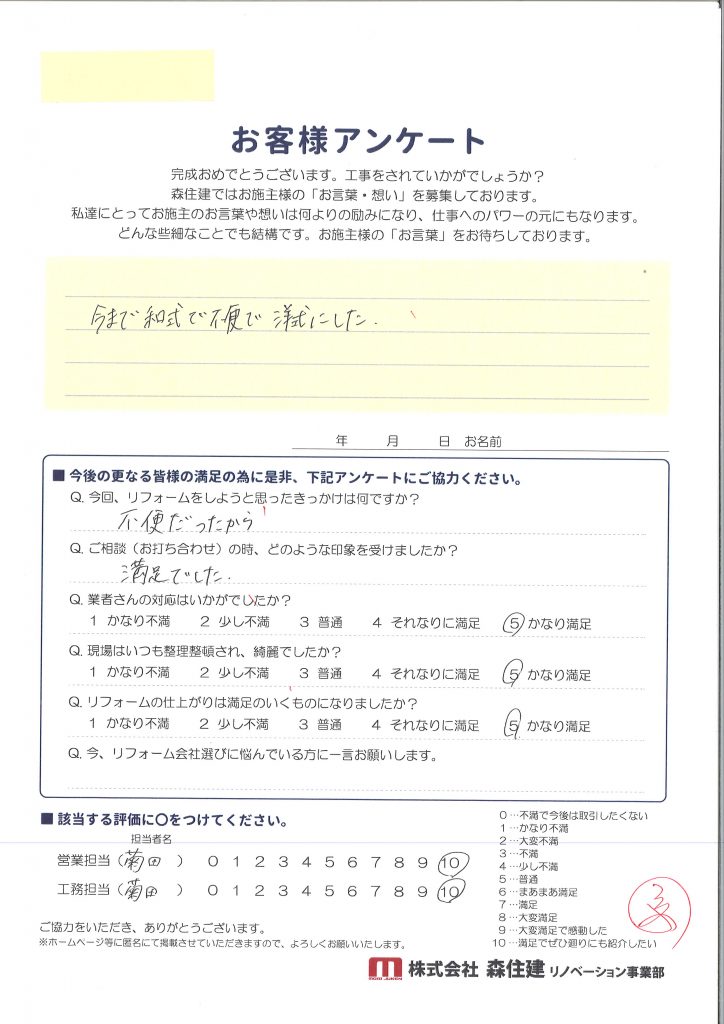 お客様アンケート
完成おめでとうございます。工事をされていかがでしょうか？
森住建ではお施主様の「お言葉・想い」を募集しております。
私達にとってお施主のお言葉や想いは何よりの励みになり、仕事へのパワーの元にもなります。
どんな些細なことでも結構です。お施主様の「お言葉」をお待ちしております。
今まで和式で不便で洋式にした.
年 月 日 お名前
■ 今後の更なる皆様の満足の為に是非、下記アンケートにご協力ください。
Q. 今回、リフォームをしようと思ったきっかけは何ですか？
不便だったから
Q. ご相談（お打ち合わせ）の時、どのような印象を受けましたか？
満足でした.
Q. 業者さんの対応はいかがでしたか？
1 かなり不満 2 少し不満 3 普通 4 それなりに満足 5 かなり満足
Q. 現場はいつも整理整頓され、綺麗でしたか？
1 かなり不満 2 少し不満 3 普通 4 それなりに満足 5 かなり満足
Q. リフォームの仕上がりは満足のいくものになりましたか？
1 かなり不満 2 少し不満 3 普通 4 それなりに満足 5 かなり満足
Q. 今、リフォーム会社選びに悩んでいる方に一言お願いします。
■ 該当する評価に〇をつけてください。
担当者名
営業担当（菊田） 0 1 2 3 4 5 6 7 8 9 10
工務担当（菊田） 0 1 2 3 4 5 6 7 8 9 10
0…不満で今後は取引したくない
1…かなり不満
2…大変不満
3…不満
4…少し不満
5…普通
6…まあまあ満足
7…満足
8…大変満足
9…大変満足で感動した
10…満足でぜひ廻りにも紹介したい
ご協力をいただき、ありがとうございます。
※ホームページ等に匿名にて掲載させていただきますので、よろしくお願いいたします。
MORI JUKEN 株式会社 森住建 リノベーション事業部